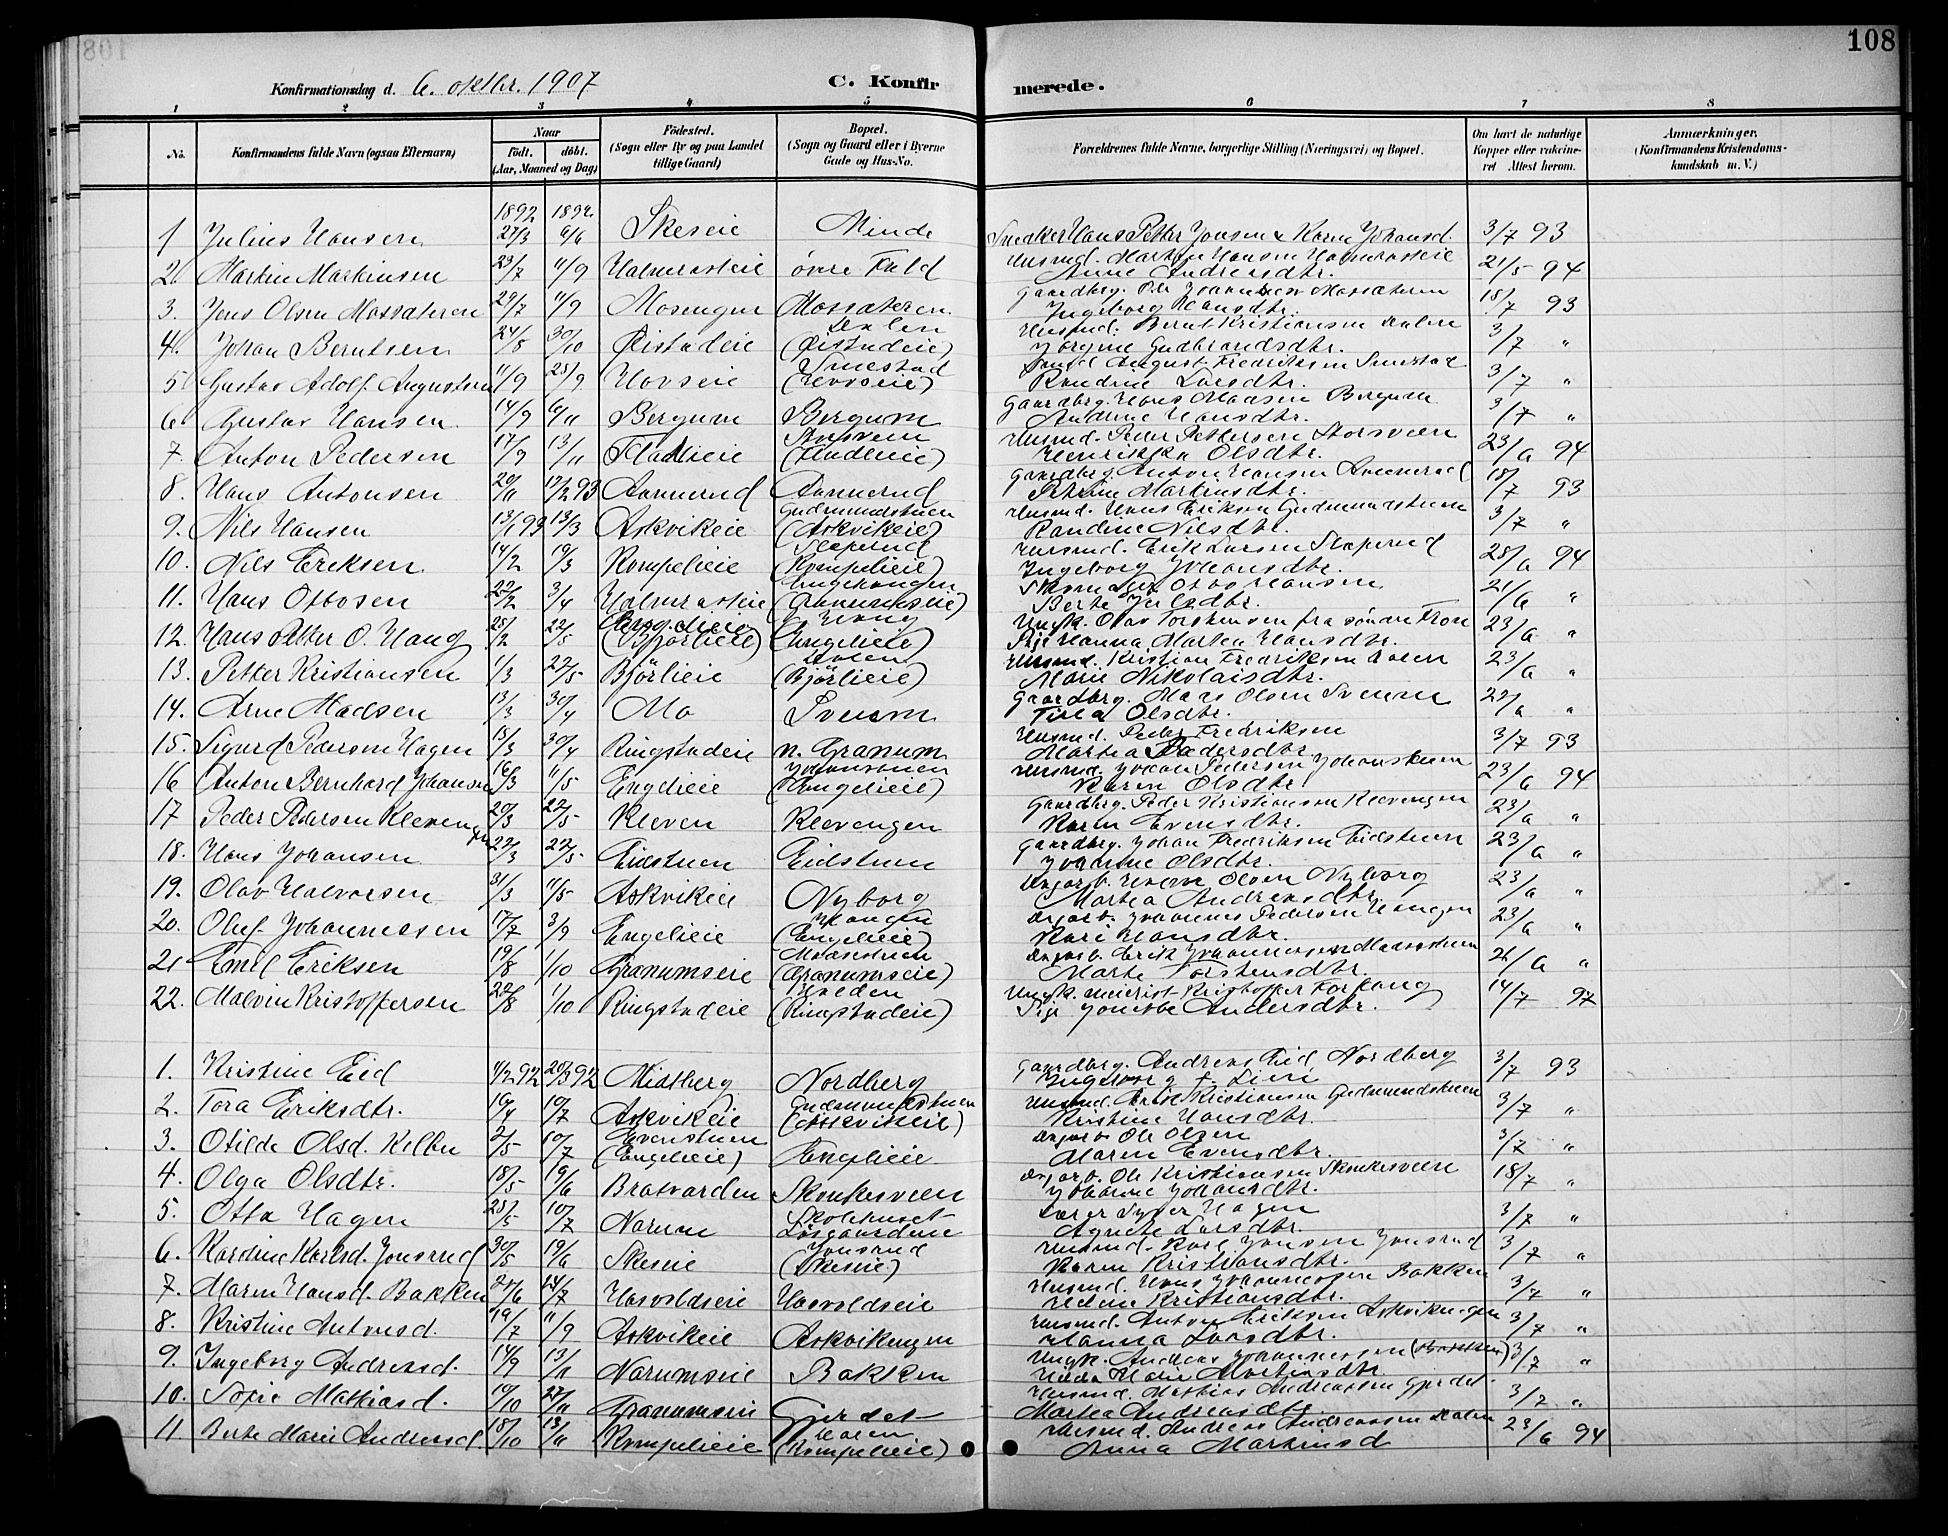 108
Konfirmationsdag d. 6. oktbr. 1907
C. Konfirmerede.
1 2 3 4 5 6 7 8
No. Konfirmandens fulde Navn (ogsaa Efternavn) Naar födt. döbt. (Aar, Maaned og Dag) Födested. (Sogn eller By og paa Landet tillige Gaard) Bopæl. (Sogn og Gaard eller i Byerne Gade og Hus-No. Forældrenes fulde Navne, borgerlige Stilling (Næringsvei) og Bopæl. Om havt de naturlige Kopper eller vakcineret Attest herom. Anmærkninger. (Konfirmandens Kristendomskundskab m. V.)
1892 1892
1 Julius Hansen 27/3 6/6 Skeseie Minde Snedker Hans Petter Jonsen & Karen Johansd. 3/7 93
2. Martin Martinsen 23/7 11/9 øvre Fald Husmd. Martin Hansen Anne Andreasdtr. 21/5 94
3. Jens Olsen Mossateren 29/7 11/9 Mosengen Mossateren Gaardbrg. Ole Ingeborg Hansdtr. 18/7 93
4. Johan Berntsen 24/8 30/10 Øistadeie Dalen (Øistadeie) Husmd. Bernt Kristiansen Dalen Jørgine Gudbrandsdtr. 3/7 "
5 Gustav Adolf Augustsen 11/9 25/9 Hovseie Smestad (Hovseie) August Fredriksen Smestad Randine Larsdtr. 3/7 "
6 Gustav Hansen 14/9 6/11 Bergum Bergum Gaardbrg. Hans Madsen Bergum Andrine Hansdtr. 3/7 "
7. Anton Pedersen 17/9 13/11 Fladlieie (Fladlieie) Husmd. Peder Pettersen Henrikka Olsdtr. 23/6 94
8. Hans Antonsen 20/11 12/2 93 Aannerud Aannerud Gaardbrg. Anton Hansen Aannerud Petrine Martinsdtr. 18/7 93
9. Nils Hansen 13/1 93 13/3 Askvikeie Gudmundstuen (Askvikeie) Husmd. Hans Eriksen Gudmundstuen Randine Nilsdtr. 3/7 "
10. Nils Eriksen 14/2 19/3 Rompelieie Sloperud (Rompelieie) Husmd. Erik Larsen Sloperud Ingeborg Johansdtr. 28/6 94
11. Hans Ottosen 22/2 3/4 Otto Hansen Berte 21/6 "
12. Hans Petter O. Haug 25/2 22/5 Engelieie (Bjørlieie) Haug (Engelieie) Ungk. Olav Torstensen fra søndre Fron Pige Hanna Martea Hansdtr. 23/6 "
13. Petter Kristiansen 1/3 22/5 Bjørlieie Dalen (Bjørlieie) Husmd. Kristian Fredriksen Dalen Marie Nikolaisdtr. 23/6 "
14. Arne Madsen 13/3 30/4 Mo Svenum Gaardbrg. Mads Olsen Svenum Olsdtr. 22/6 "
15. Sigurd Pedersen Hagen 15/3 30/4 Ringstadeie n. Granum Husmd. Peder Fredriksen Martea Pedersdtr. 3/7 93
16 Anton Bernhard Johansen 16/3 11/5 Engelieie Johanstuen (Engelieie) Husmd. Johan Pedersen Johanstuen Karen Olsdtr. 23/6 94
17 Peder Pedersen Klevengen 20/3 22/5 Kleven Klevengen Gaardbrg. Peder Kristiansen Klevengen Karen Evensdtr. 23/6 "
18. Hans Johansen 22/3 22/5 Eidstuen Eidstuen Gaardbrg. Johan Fredriksen Eidstuen Johanne Olsdtr. 23/6 "
19. Olav Halvorsen 31/3 11/5 Askvikeie Nyborg Halvor Olsen Nyborg Martea Andreasdtr. 23/6 "
20. Oluf Johannessen 17/7 3/9 Engelieie Haugen (Engelieie) Johannes Pedersen Haugen Kari Hansdtr. 23/6 "
21 Emil Eriksen 19/8 1/10 Granumseie (Granumseie) Erik Johannessen Marte Torstensdtr. 21/6 "
22. Malvin Kristoffersen 22/8 1/10 Ringstadeie (Ringstadeie) Ungk. meierist Kristoffer Forfang Pige Andersdtr. 14/7 97
1. Kristine Eid 4/2 92 20/3 92 Midtberg Nordberg Gaardbrg. Andreas Eid Nordberg Ingeborg f. Lien 3/7 93
2. Tora Eriksdtr. 10/4 10/7 Askvikeie Gudmundstuen (Askvikeie) Husmd. Erik Kristiansen Gudmundstuen Kristine Hansdtr. 3/7 "
3. Otilde Olsd. 2/5 10/7 Evenstuen (Engelieie) Engelieie Ole Olsen Maren Evensdtr. 3/7 "
4. Olga Olsdtr. 18/5 19/6 Bratvarden Skonkesveen Ole Kristiansen Skonkesveen Johanne Johansdtr. 18/7 "
5. Otta Hagen 23/5 10/7 Narum Skolehuset Lærer Syver Hagen Agnete Larsdtr. 3/7 "
6. Kardine Karlsd. Jonsrud 30/5 19/6 Skeseie Jonsrud (Skeseie) Husmd. Karl Jonsen Jonsrud Karen Kristiansdtr. 3/7 "
7. Maren Hansd. Bakken 27/6 24/7 Hasvoldseie Hasvoldseie Husmd. Hans Johannessen Bakken Helene Kristiansdtr. 3/7 "
8. Kristine Antonsd. 19/7 11/9 Askvikeie Askvikengen Husmd. Anton Eriksen Askvikengen Hanna Larsdtr. 3/7 "
9. Ingeborg Andreasd. 14/9 13/11 Narumseie Bakken Ungk. Andreas Johannessen (Bakken) Hilda Marie Martinsdtr. 3/7 "
10. Sofie Mathiasd. 10/10 27/11 Granumseie Gjerdet Husmd. Mathias Andreassen Gjerdet Martea Andreasdtr. 3/7 "
11 Berte Marie Andreasd. 18/10 13/11 Rompelieie Dalen (Rompelieie) Husmd. Andreas Andreassen Dalen Anna Martinsd 23/6 94